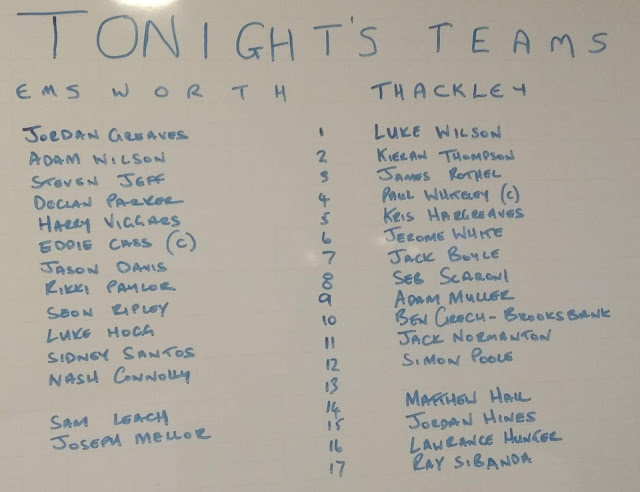 TONIGHT'S TEAMS
EMSWORTH THACKLEY
JORDAN GREAVES 1 LUKE WILSON
ADAM WILSON 2 KIERAN THOMPSON
STEVEN JEFF 3 JAMES ROTHEL
DECLAN PARKER 4 PAUL WHITELEY (C)
HARRY VIGGARS 5 KRIS HARGREAVES
EDDIE CASS (C) 6 JEROME WHITE
JASON DAVIS 7 JACK BOYLE
RIKKI PAYLOR 8 SEB SCARONI
SEON RIPLEY 9 ADAM MULLER
LUKE HOGG 10 BEN GRECH-BROOKSBANK
SIDNEY SANTOS 11 JACK NORMANTON
NASH CONNOLLY 12 SIMON POOLE
13
SAM LEACH 14 MATTHEW HALL
JOSEPH MELLOR 15 JORDAN HINES
16 LAWRANCE HUNGER
17 RAY SIBANDA